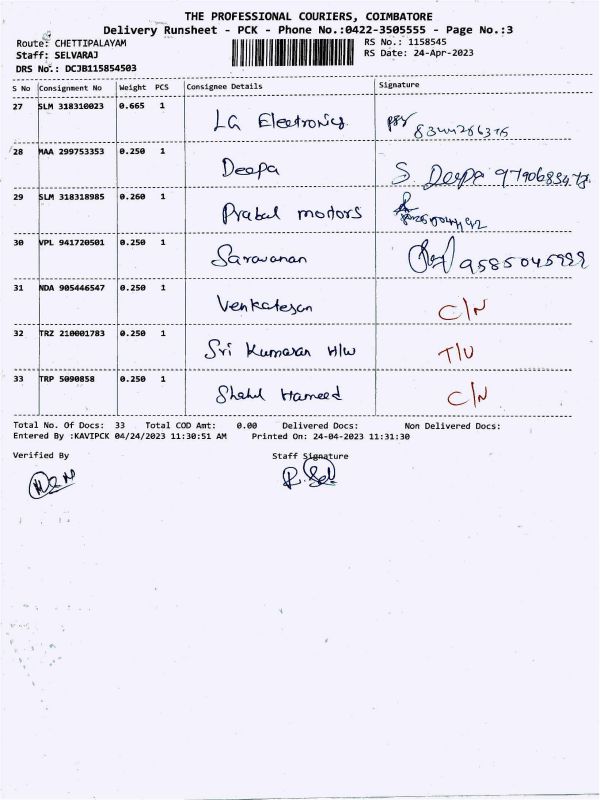 THE PROFESSIONAL COURIERS, COIMBATORE
Delivery Runsheet - PCK - Phone No.:0422-3505555 - Page No.:3
Route: CHETTIPALAYAM RS No.: 1158545
Staff: SELVARAJ RS Date: 24-Apr-2023
DRS No.: DCJB115854503
S No Consignment No Weight PCS Consignee Details Signature
27 SLM 318310023 0.665 1 LG Electronics
28 MAA 299753353 0.250 1 Deepa S. Deepa
29 SLM 318318985 0.260 1 Prabal motors
30 VPL 941720501 0.250 1 Saravanan
31 NDA 905446547 0.250 1 Venkatesan C/N
32 TRZ 210001783 0.250 1 Sri Kumaran H/W T/U
33 TRP 5090858 0.250 1 Shahul Hameed C/N
Total No. Of Docs: 33 Total COD Amt: 0.00 Delivered Docs: Non Delivered Docs:
Entered By :KAVIPCK 04/24/2023 11:30:51 AM Printed On: 24-04-2023 11:31:30
Verified By Staff Signature